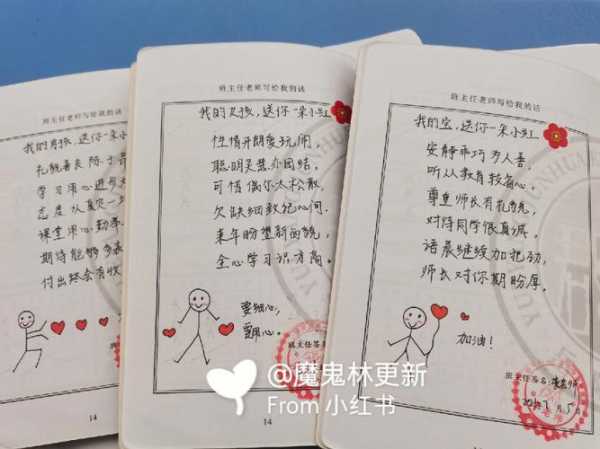 班主任老师写给我的话
我的男孩，送你一朵小
礼貌善良
学习用心进步
态度认真
课堂用心勤
期待能够多
付出终会有收
14
班主任老师写给我的话
我的女孩，送你一朵小红
性情开朗爱玩闹，
聪明灵慧亦团结，
可惜偶尔太松散，
欠缺细致记心间。
来年盼望新面貌，
全心学习识才高。
要细心，
要用心。
班主任签
14
班主任老师写给我的话
我的宝，送你一朵小红
安静乖巧为人善，
听从教育较省心，
尊重师长有礼貌，
对待同学很真诚，
语晨继续加把劲，
师长对你期盼厚。
加油！
班主任签名:
@魔鬼林更新
From 小红书